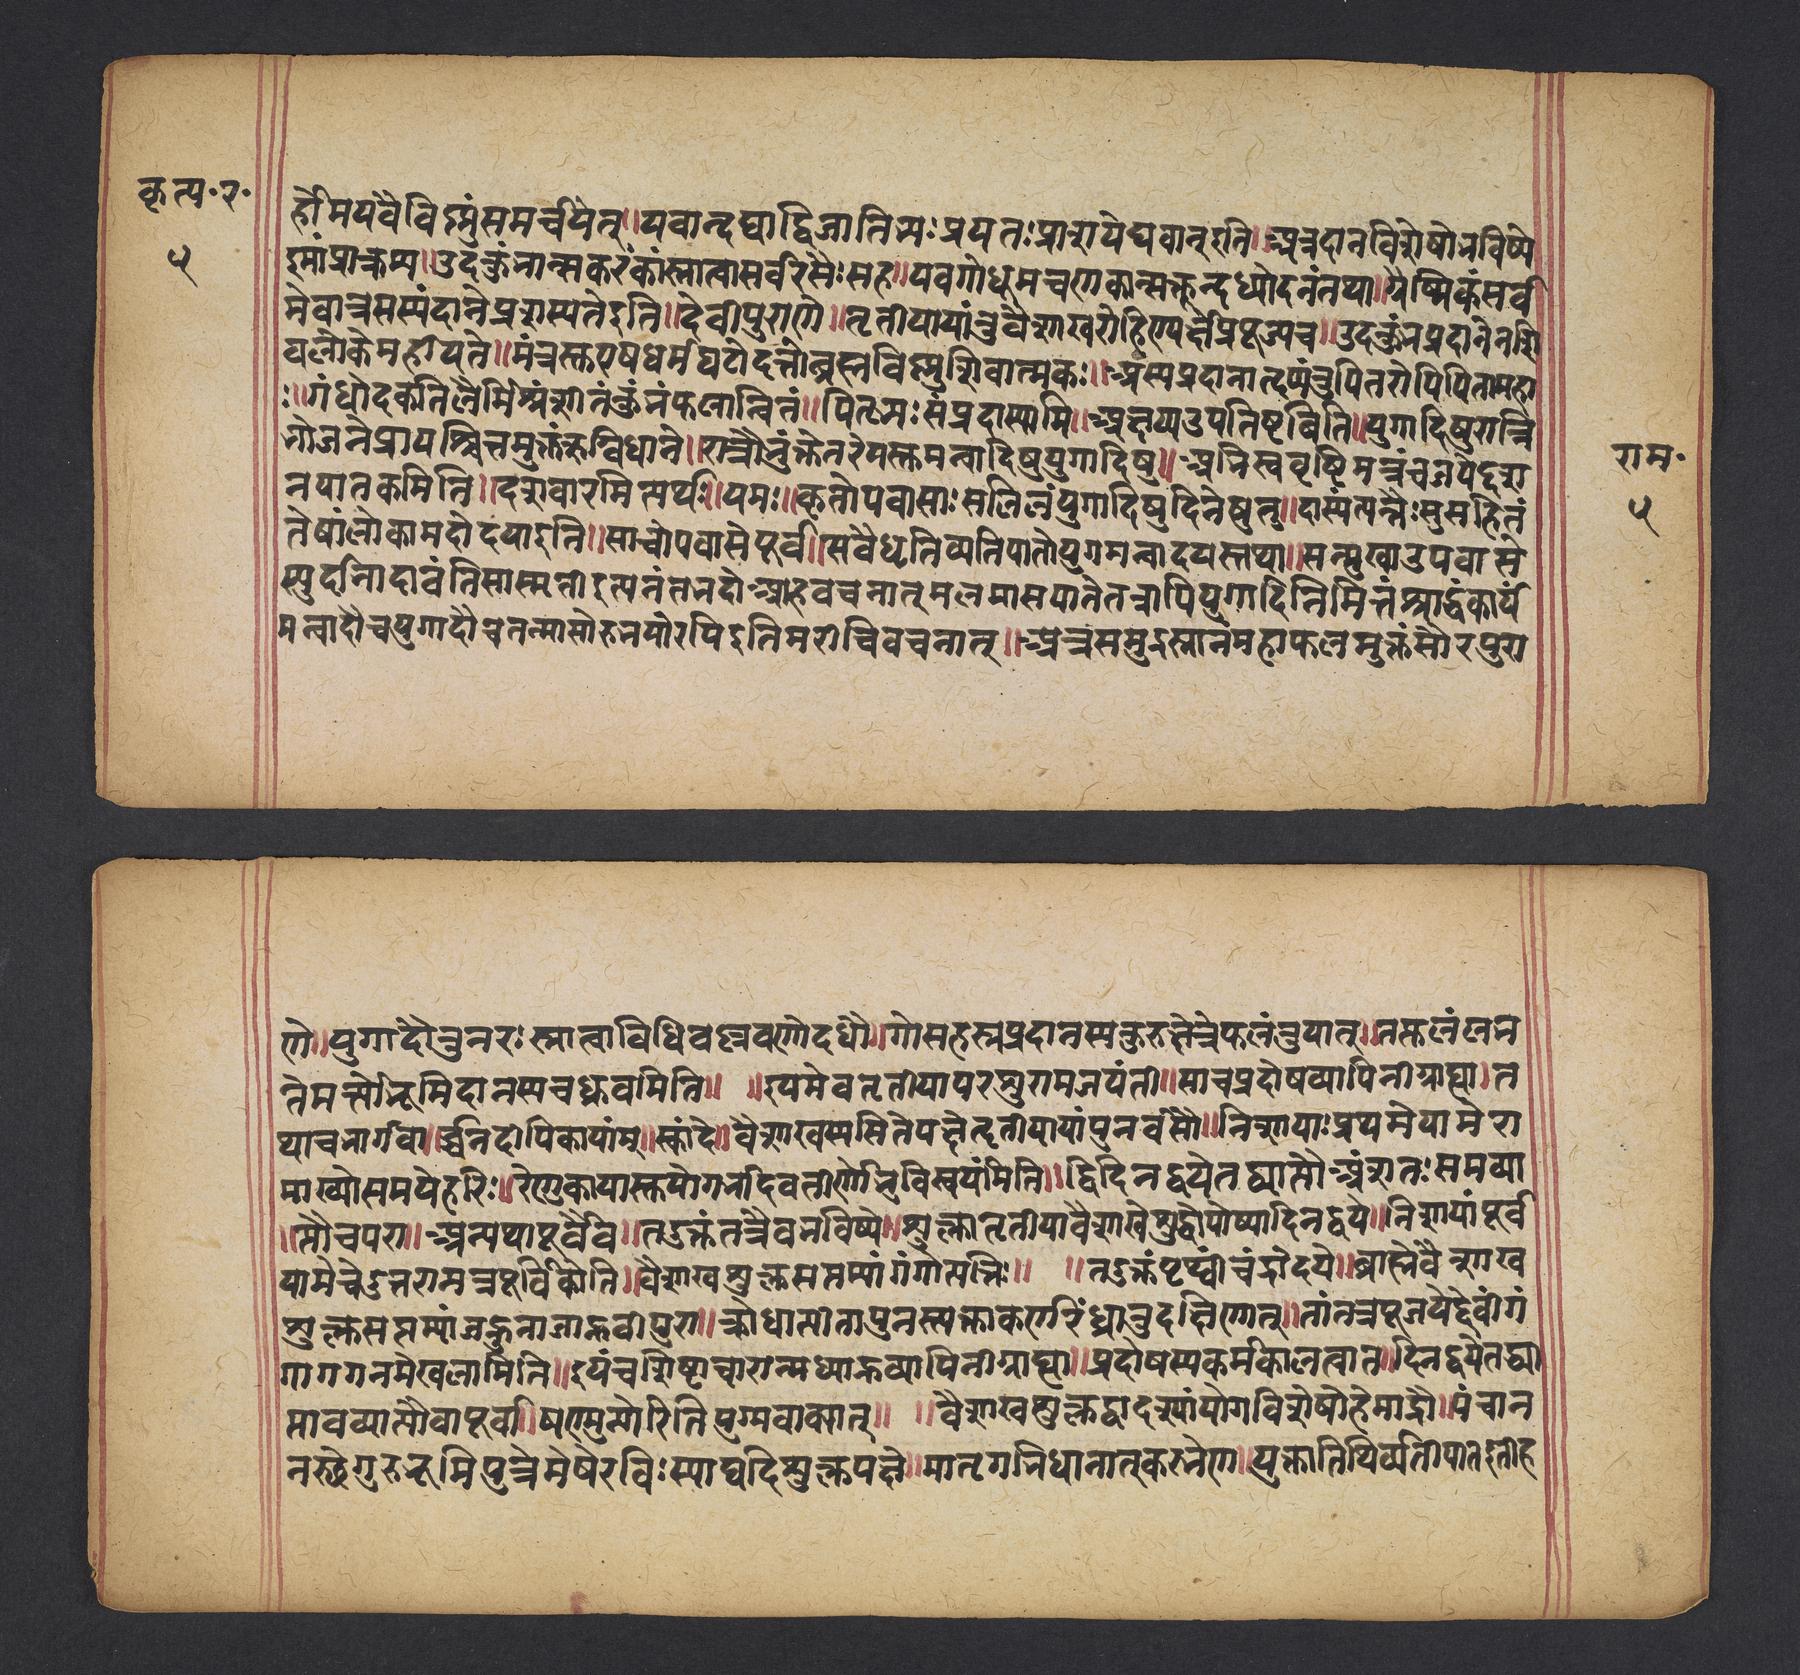 कृत्य॰र॰
५
र्होमैयवैर्विष्णुंसमर्चयेत्॥यवान्दद्याद्द्विजातिभ्यःप्रयतःप्राशयेद्यवान्इति॥अन्नदानविशेषोभविष्ये
इमांप्राक्रम्य॥उदकुंभान्सकरकांस्नात्वासर्वरसैःसह॥यवगोधूमचणकान्सक्तून्दध्योदनंतथा॥ग्रैष्मिकंसर्व
मेवान्नसस्यंदानेप्रशस्यतेइति॥देवीपुराणे॥तृतीयायांतुवैशाखेरोहिण्यर्क्षेप्रपूज्यच॥उदकुंभप्रदानेनशि
वलोकेमहीयते॥मंत्रस्तुएषधर्मघटोदत्तोब्रह्मविष्णुशिवात्मकः॥अस्यप्रदानात्तृप्यंतुपितरोपिपितामहा
ः॥गंधोदकतिलैर्मिश्रंसान्नंकुंभंफलान्वितं॥पितृभ्यःसंप्रदास्यामि॥अक्षय्यउपतिष्ठत्विति॥युगादिषुरात्रि
भोजनेप्रायश्चित्तमुक्तंऋग्विधाने॥रात्रौभुंक्तेनरेयस्तुमन्वादिषुयुगादिषु॥अभिस्ववृष्टिमंत्रंचजपेद्दशा
नपातकमिति॥दशवारमित्यर्थः॥यमः॥कृतोपवासाःसलिलंयुगादिषुदिनेषुत्॥दास्यंत्यन्नैःसुसहितं
तेषांलोकामहोदयाइति॥साचोपवासेपूर्वा॥सवैधृतिव्यतिपातोयुगमन्वादयस्तथा॥सन्मुखाउपवासे
स्युर्दानादावंतिसास्मृताइत्यनंतभदोआहवचनात्मलमासपातेतत्रापियुगादिनिमित्तंश्राद्धंकार्यं
मन्वादौचयुगादौचतन्मासोरुभयोरपिइतिमरीचिवचनात्॥अत्रसमुद्रस्नानंमहाफलमुक्तंसौरपुरा
राम॰
५
णे॥युगादौतुनरःस्नात्वाविधिवल्लवणोदधौ॥गोसहस्रप्रदानस्यकुरुक्षेत्रेफलंतुयात्॥तत्फलंलभ
तेमर्त्योभूमिदानस्यचध्रुवमिति॥ ॥इयमेवतृतीयापरशुरामजयंती॥साचप्रदोषव्यापिनीग्राह्या।त
थाचभार्गवार्चनदीपिकायांम्॥स्कांदे॥वैशाखस्यसितेपक्षेतृतीयायांपुनर्वसौ॥निशायाःप्रथमेयामेरा
माख्योसमयेहरिः॥रेणुकायास्तुयोगर्भादवतीर्णोविभुस्वयंमिति॥द्विदिनद्वयेतद्व्याप्तौअंशतःसमव्या
॥प्तौचपरा॥अन्यथापूर्वैव॥तदुक्तंतत्रैवभविष्ये॥शुक्लातृतीयावैशाखेशुद्धोपोष्यादिनद्वये॥निशायांपूर्व
यामेचेदुत्तरामत्रपूर्विकेति॥वैशाखशुक्लसप्तम्यांगंगोत्पत्तिः॥ ॥तदुक्तंपृथ्वीचंद्रोदये॥ब्राह्मेवैशाख
शुक्लसप्तम्यांजह्नुनाजाह्नवीपुरा॥क्रोधात्पीतापुनस्त्यक्ताकर्णरंध्रात्तुदक्षिणात्॥तांतत्रपूजयेद्देवींगं
गांगगनमेखलामिति॥इयंचशिष्टाचारान्मध्याह्नव्यापिनीग्राह्या॥प्रदोषस्यकर्मकालत्वात्॥दिनद्वयेतद्व्या
प्तावव्याप्तौवापूर्वा॥षण्मुन्योरितियुग्मवाक्यात्॥ ॥वैशाखशुक्लद्वादश्यांयोगविशेषोहेमाद्रौ॥पंचान
नस्थेगुरुभूमिपुत्रेमेषेरविःस्याद्यदिशुक्लपक्षे॥मातृगभिधानात्करभेण॥युक्तातिथिर्व्यतीपातइतीह